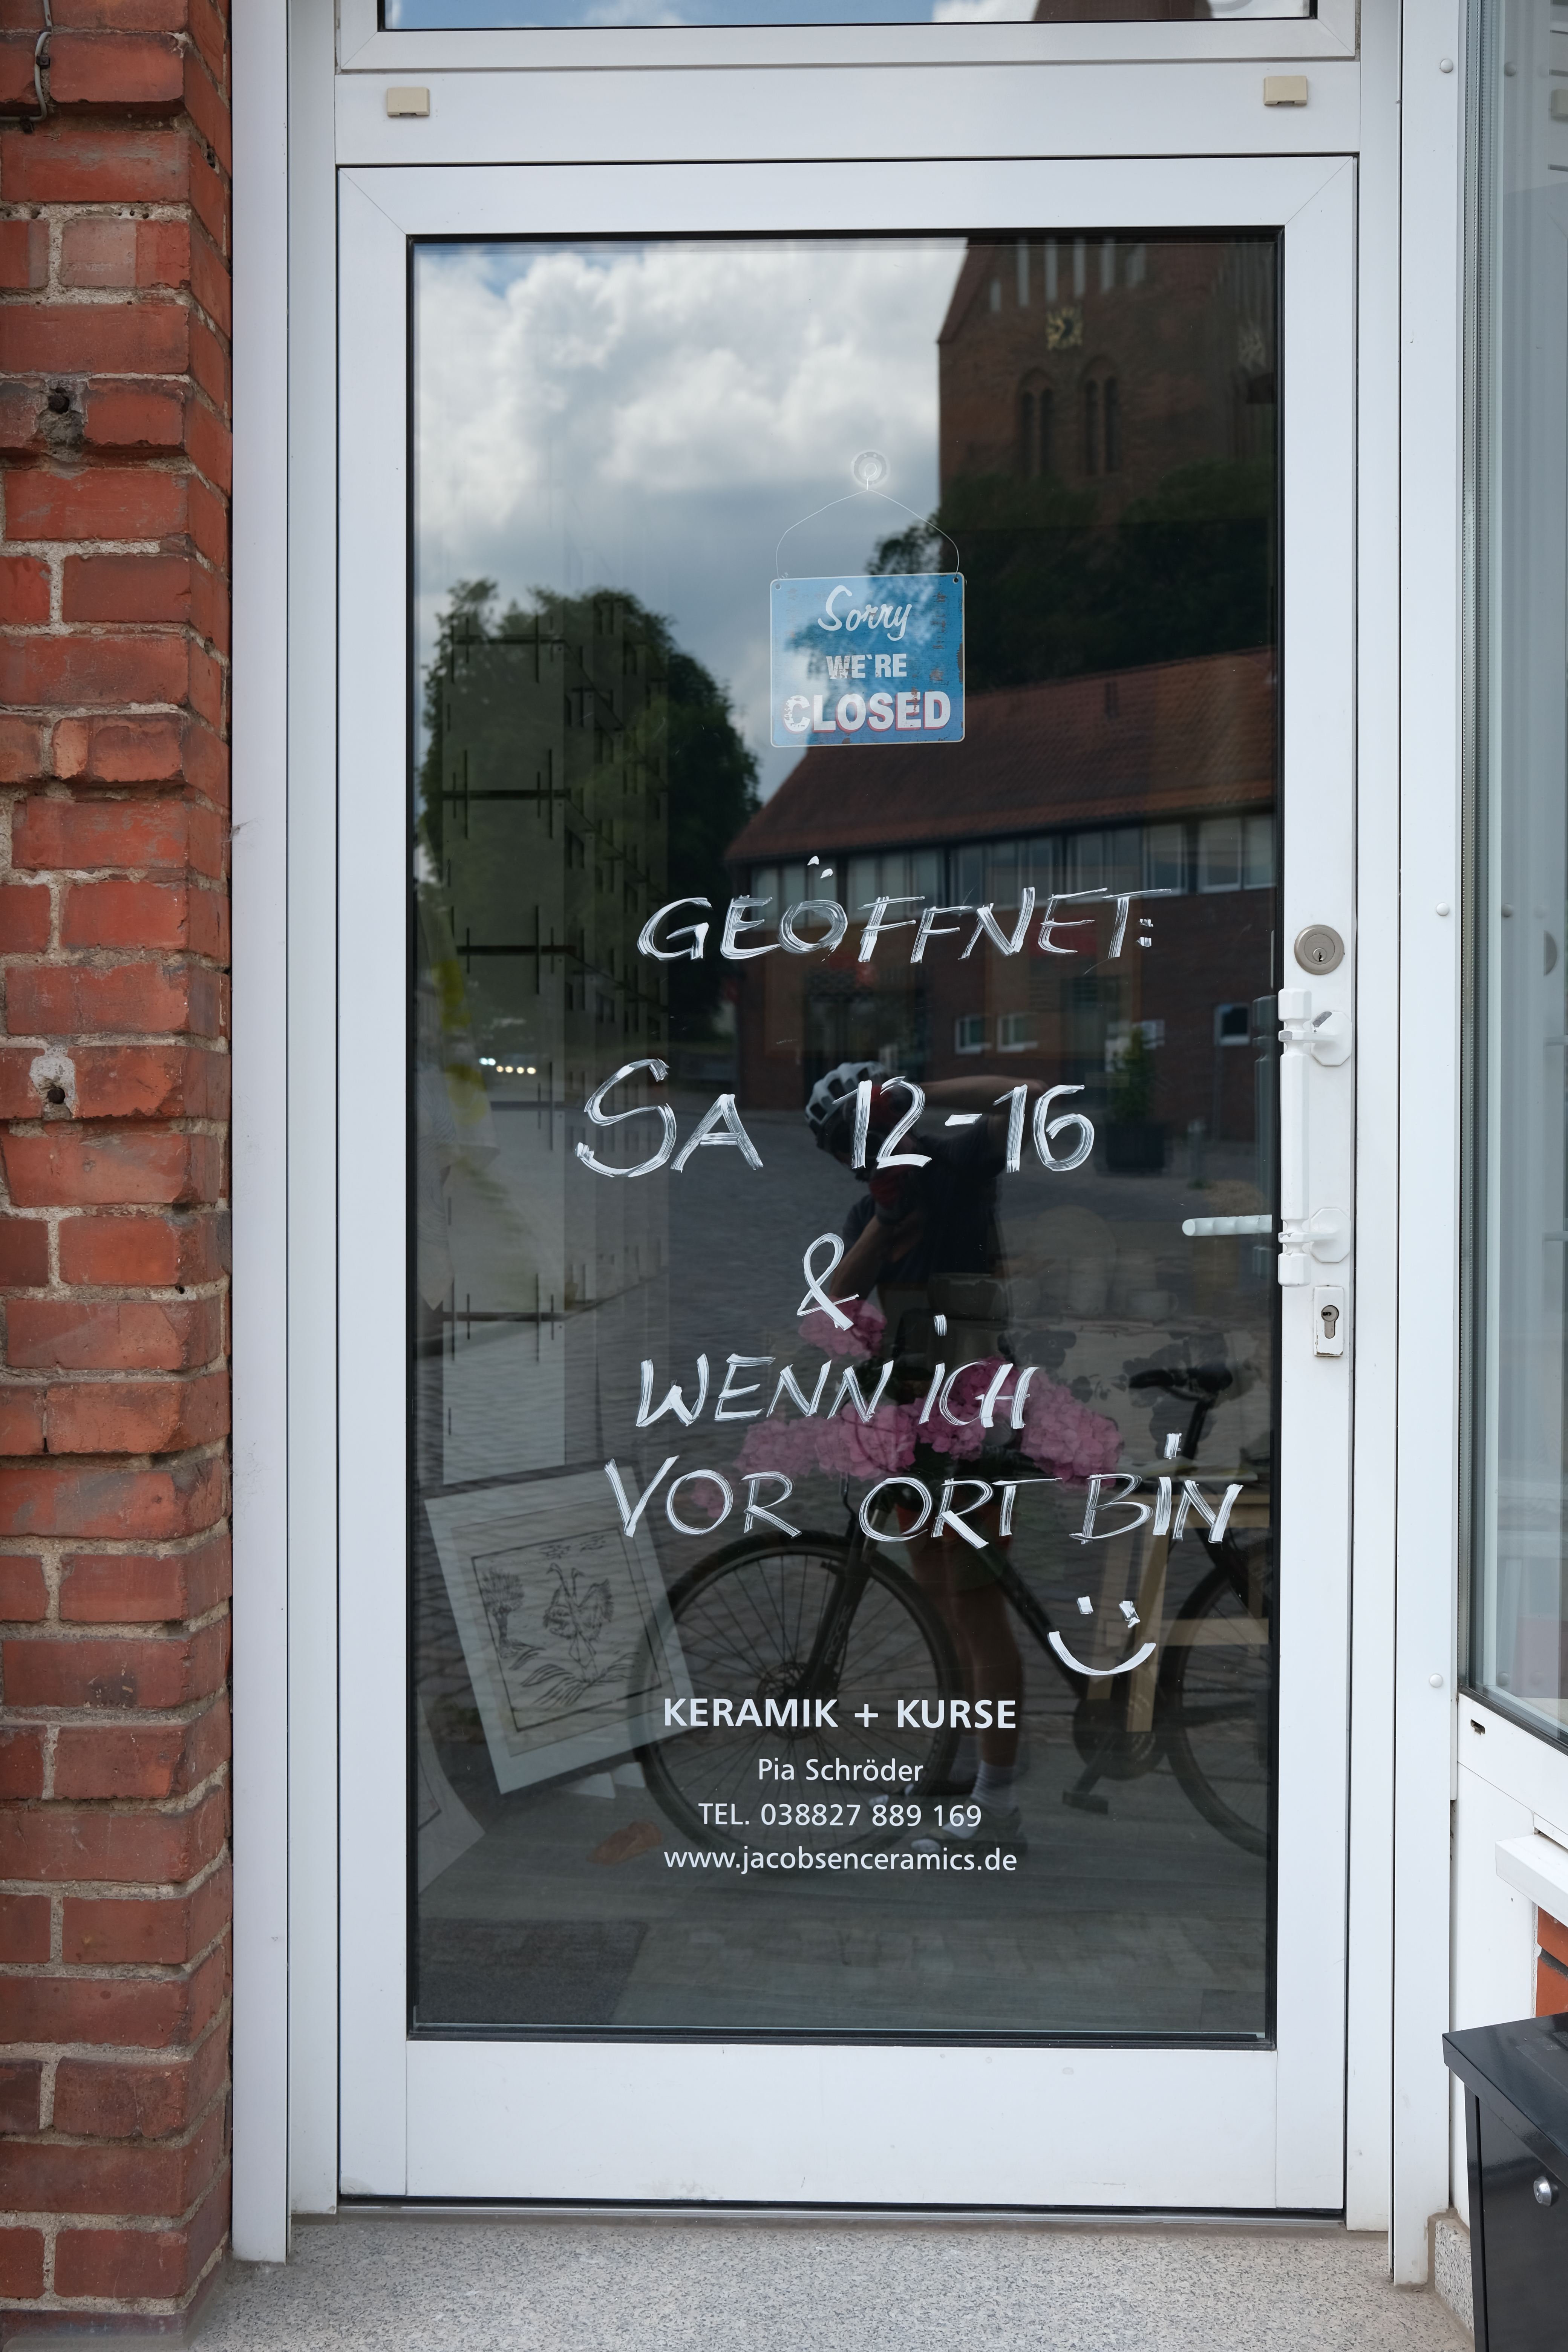 Sorry
WE'RE
CLOSED
GEÖFFNET:
SA 12-16
&
WENN iCH
VOR ORT BiN
KERAMIK + KURSE
Pia Schröder
TEL. 038827 889 169
www.jacobsenceramics.de